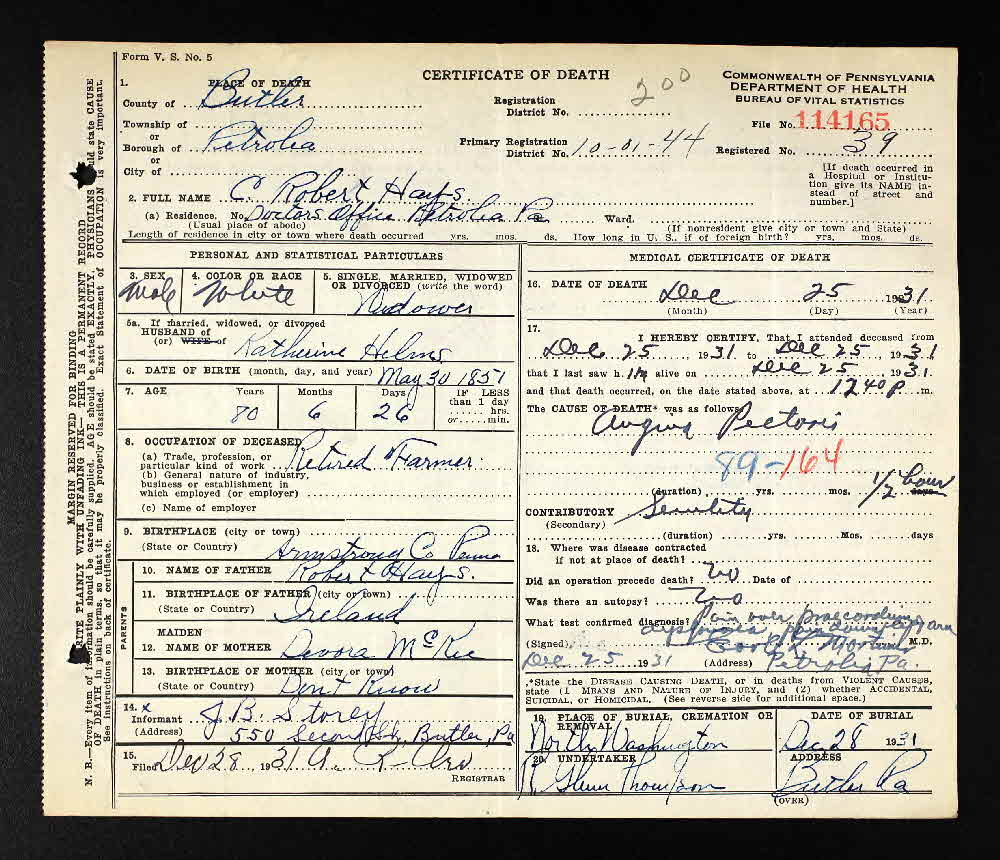 Form V. S. No. 5
CERTIFICATE OF DEATH
200
COMMONWEALTH OF PENNSYLVANIA
DEPARTMENT OF HEALTH
BUREAU OF VITAL STATISTICS
1. PLACE OF DEATH
County of Butler
Registration District No.
File No. 114165
Township of
or
Borough of Petrolia
or
City of
Primary Registration District No. 10-01-44
Registered No. 39
[If death occurred in a Hospital or Institution give its NAME instead of street and number.]
2. FULL NAME C. Robert Hays.
(a) Residence. No. Doctors Office Petrolia Pa Ward.
(Usual place of abode) (If nonresident give city or town and State)
Length of residence in city or town where death occurred yrs. mos. ds. How long in U. S., if of foreign birth? yrs. mos. ds.
PERSONAL AND STATISTICAL PARTICULARS
3. SEX Male
4. COLOR OR RACE White
5. SINGLE, MARRIED, WIDOWED OR DIVORCED (write the word) Widower
5a. If married, widowed, or divorced
HUSBAND of
(or) WIFE of Katherine Helms
6. DATE OF BIRTH (month, day, and year) May 30 1851
7. AGE Years 80 Months 6 Days 26 IF LESS than 1 day ...... hrs. or ...... min.
8. OCCUPATION OF DECEASED
(a) Trade, profession, or particular kind of work Retired Farmer.
(b) General nature of industry, business or establishment in which employed (or employer)
(c) Name of employer
9. BIRTHPLACE (city or town)
(State or Country) Armstrong Co Penna
PARENTS
10. NAME OF FATHER Robert Hays.
11. BIRTHPLACE OF FATHER (city or town)
(State or Country) Ireland
12. MAIDEN NAME OF MOTHER Devora McKee
13. BIRTHPLACE OF MOTHER (city or town)
(State or Country) Dont Know
14. x
Informant J. B. Storey
(Address) 550 Second St, Butler, Pa
15.
Filed Dec 28, 1931
REGISTRAR
MEDICAL CERTIFICATE OF DEATH
16. DATE OF DEATH Dec 25 1931
(Month) (Day) (Year)
17. I HEREBY CERTIFY, That I attended deceased from
Dec 25, 1931 to Dec 25, 1931
that I last saw h im alive on Dec 25, 1931.
and that death occurred, on the date stated above, at 12 40 P. m.
The CAUSE OF DEATH* was as follows:
Angina Pectoris
89-164
(duration) yrs. mos. 1/2 hour days
CONTRIBUTORY Senility
(Secondary)
(duration) yrs. Mos. days
18. Where was disease contracted
if not at place of death?
Did an operation precede death? No Date of
Was there an autopsy? No
What test confirmed diagnosis? Pain over precordium
(Signed) M.D.
Dec 25 1931 (Address) Petrolia Pa.
*State the DISEASE CAUSING DEATH, or in deaths from VIOLENT CAUSES, state (1 MEANS AND NATURE OF INJURY, and (2) whether ACCIDENTAL, SUICIDAL, or HOMICIDAL. (See reverse side for additional space.)
19. PLACE OF BURIAL, CREMATION OR REMOVAL North Washington
DATE OF BURIAL Dec 28 1931
20. UNDERTAKER R. Glenn Thompson
ADDRESS Butler Pa
(OVER)
MARGIN RESERVED FOR BINDING
WRITE PLAINLY WITH UNFADING INK—THIS IS A PERMANENT RECORD
N. B.—Every item of information should be carefully supplied. AGE should be stated EXACTLY. PHYSICIANS should state CAUSE OF DEATH in plain terms, so that it may be properly classified. Exact Statement of OCCUPATION is very important. See instructions on back of certificate.